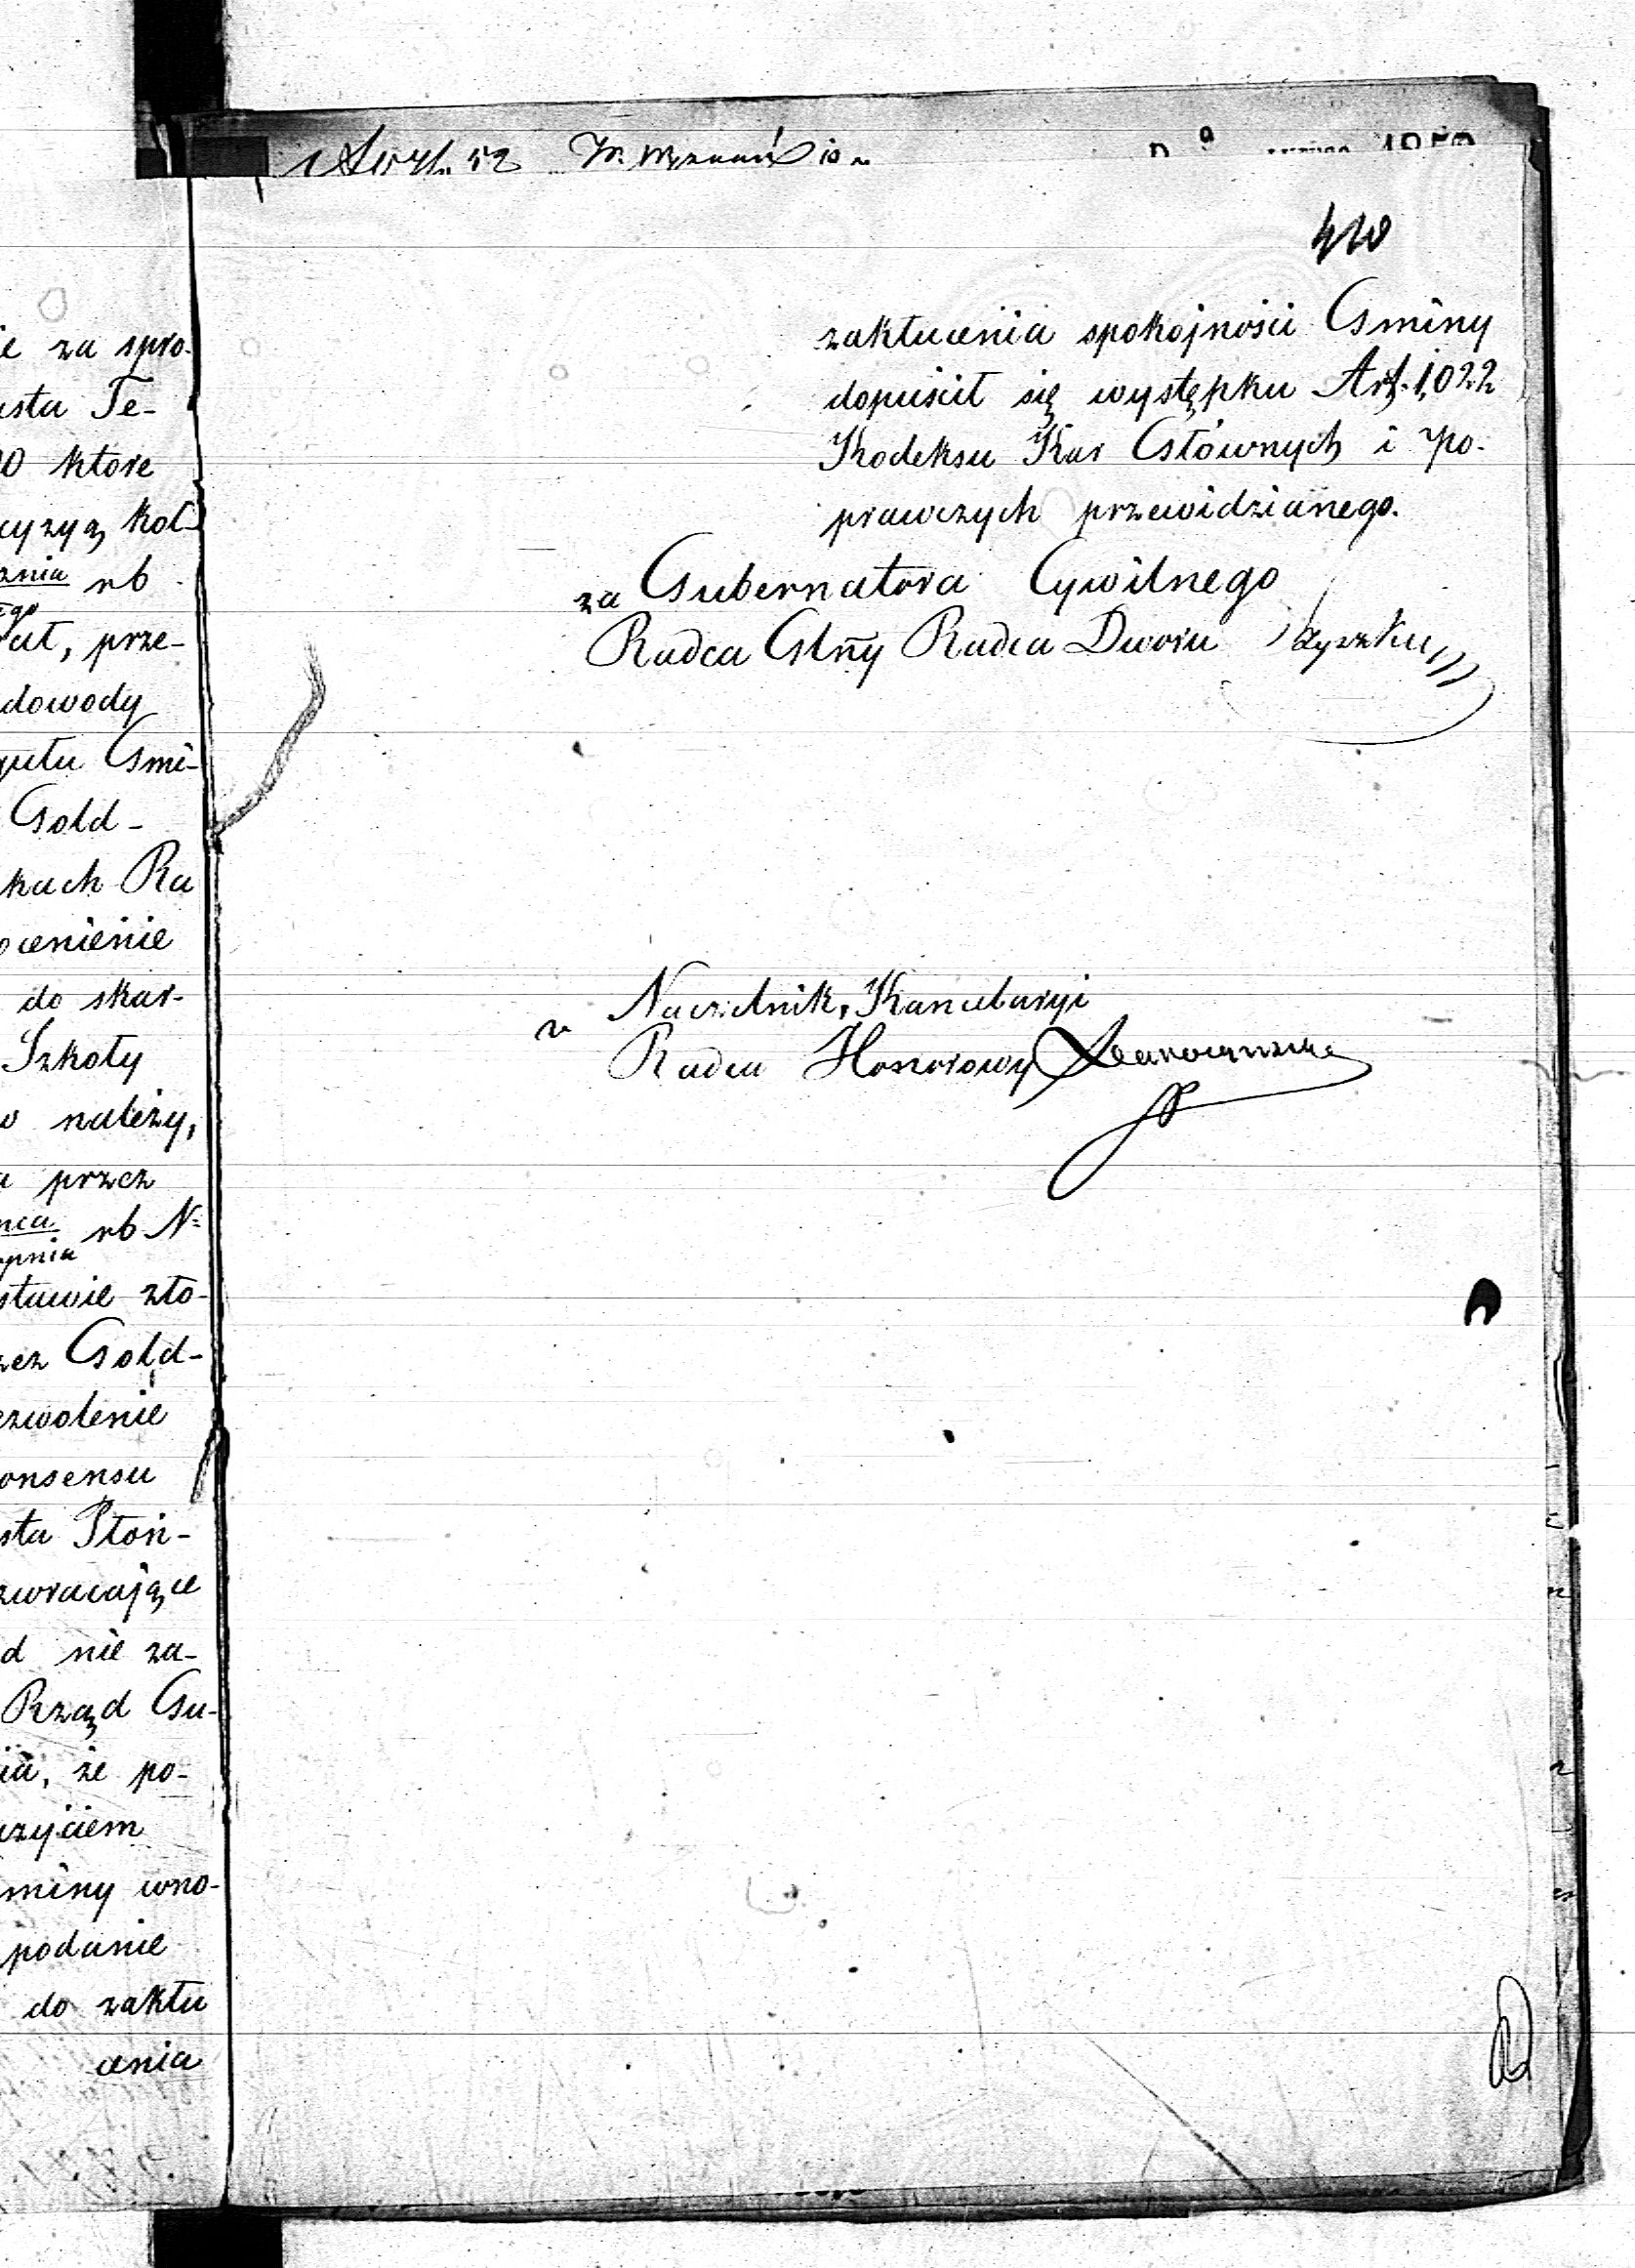 410
zakłucenia spokojności Gminy
dopuścił się występku Art. 1022
Kodeksu Kar Głównych i Po-
prawczych przewidzianego.
za Gubernatora Cywilnego
Radca Głny Radca Dworu
Naczelnik Kancelaryi
Radca Honorowy
e za spro-
sta Te-
które
rb
at, prze-
dowody
Gmi-
Gold-
kach Ra
ocenienie
do skar-
Szkoły
należy,
przez
rb N
pnia
stawie zło-
zez Gold-
ezwolenie
onsensu
sta Płoń-
zwracające
d nie za-
Rząd Gu-
ia, że po-
użyciem
miny wno-
podanie
do zakłu
cenia